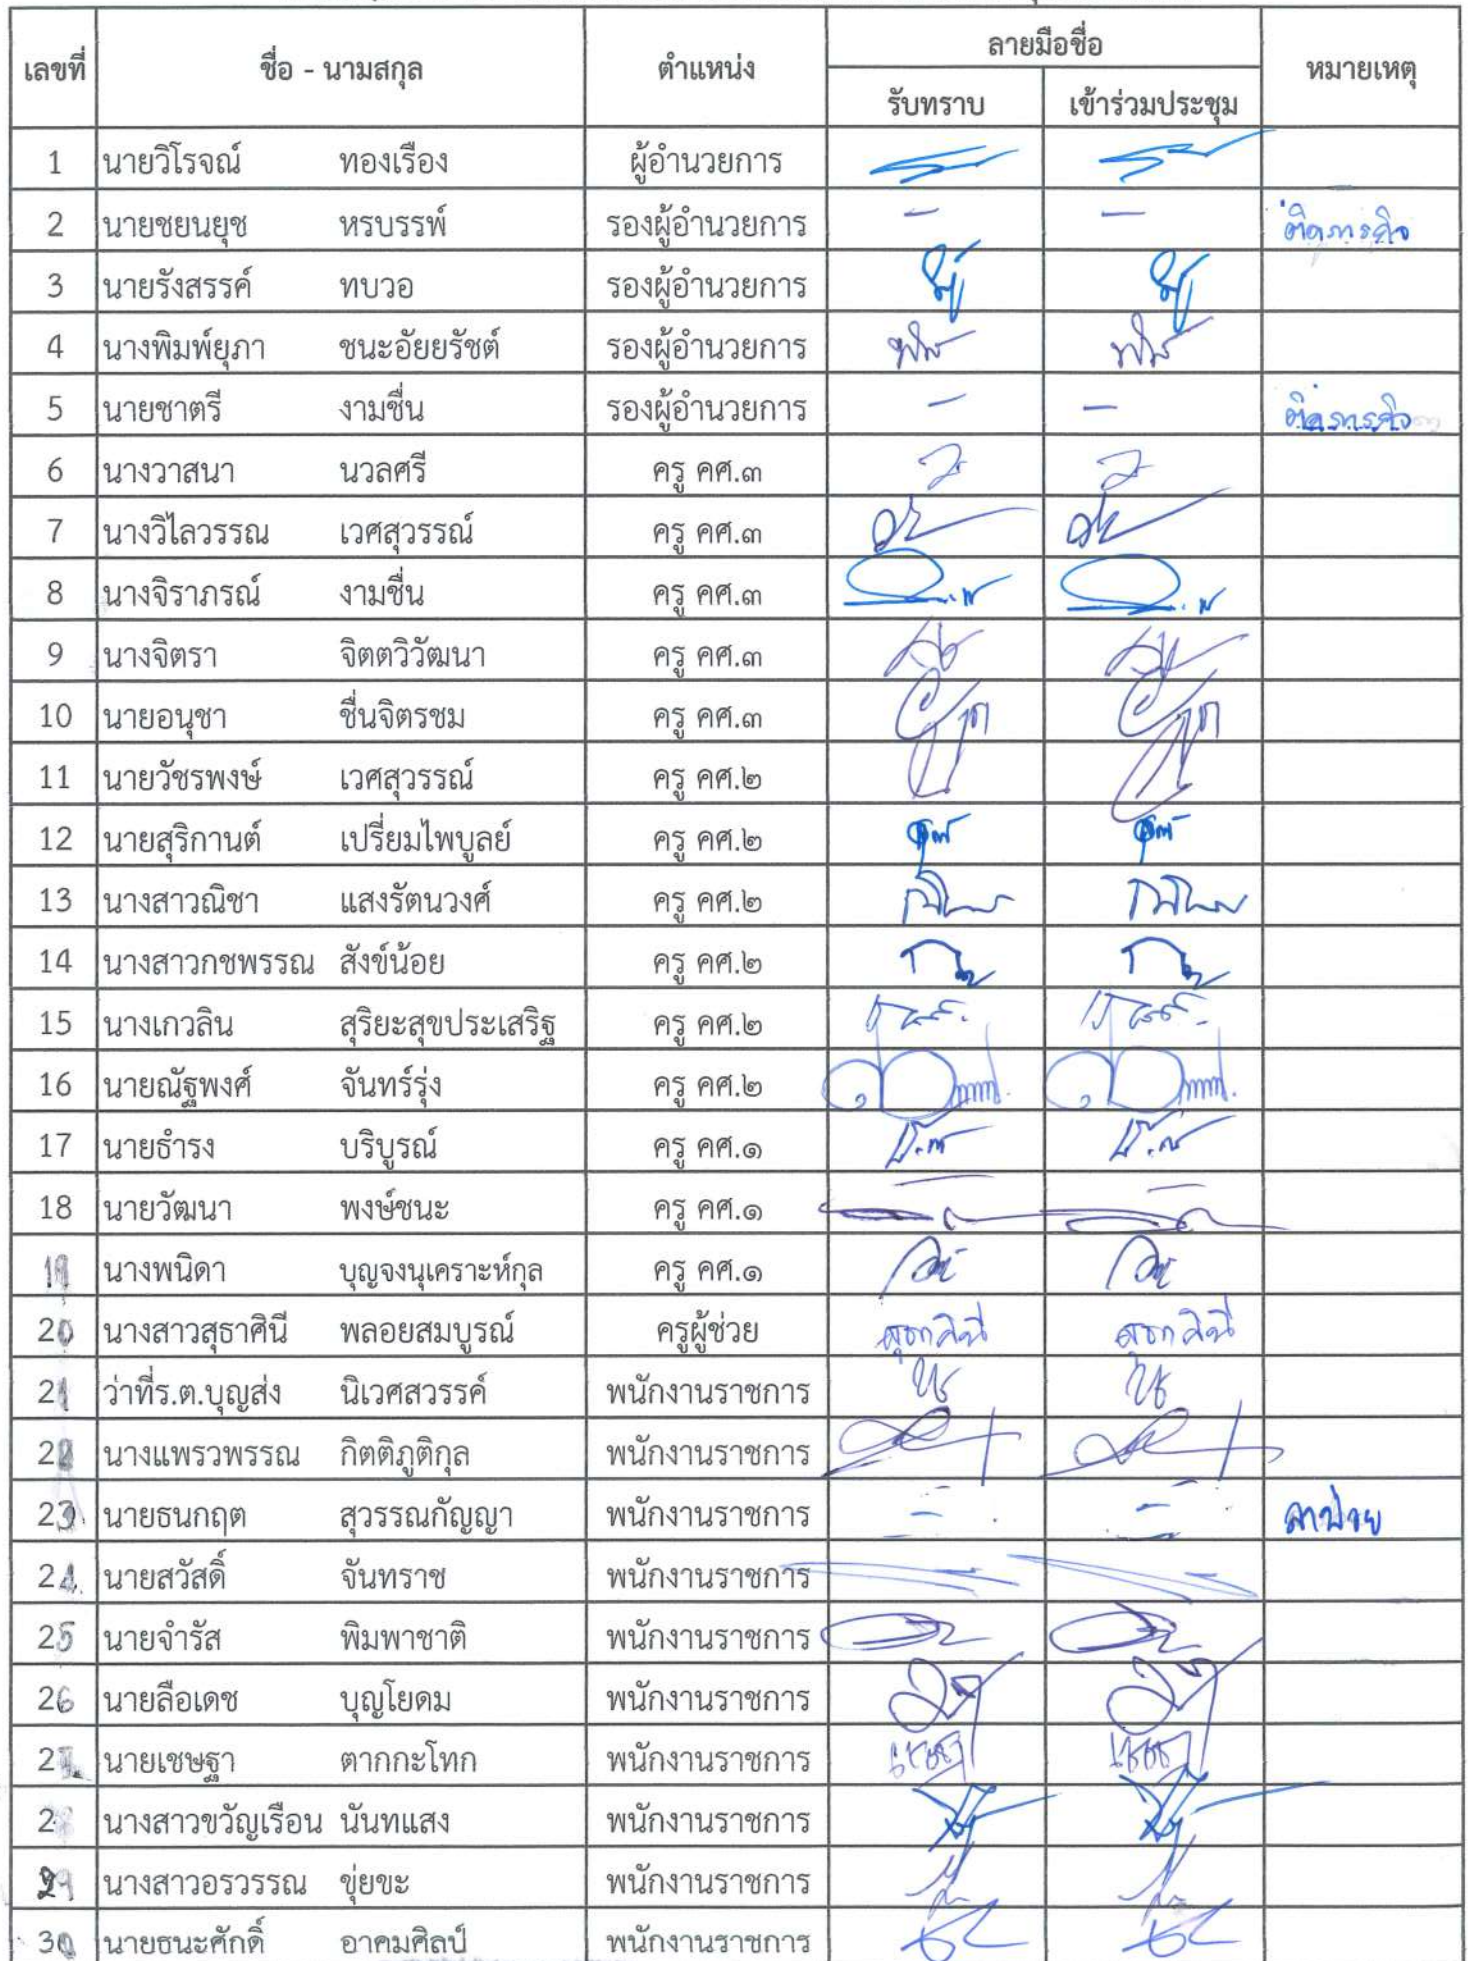 เลขที่ ชื่อ - นามสกุล ตำแหน่ง ลายมือชื่อ หมายเหตุ
รับทราบ เข้าร่วมประชุม
1 นายวิโรจณ์ ทองเรือง ผู้อำนวยการ
2 นายชยนยุช หรบรรพ์ รองผู้อำนวยการ - - ติดภารกิจ
3 นายรังสรรค์ ทบวอ รองผู้อำนวยการ
4 นางพิมพ์ยุภา ชนะอัยยรัชต์ รองผู้อำนวยการ
5 นายชาตรี งามชื่น รองผู้อำนวยการ - - ติดภารกิจ
6 นางวาสนา นวลศรี ครู คศ.๓
7 นางวิไลวรรณ เวศสุวรรณ์ ครู คศ.๓
8 นางจิราภรณ์ งามชื่น ครู คศ.๓
9 นางจิตรา จิตตวิวัฒนา ครู คศ.๓
10 นายอนุชา ชื่นจิตรชม ครู คศ.๓
11 นายวัชรพงษ์ เวศสุวรรณ์ ครู คศ.๒
12 นายสุริกานต์ เปรี่ยมไพบูลย์ ครู คศ.๒
13 นางสาวณิชา แสงรัตนวงศ์ ครู คศ.๒
14 นางสาวกชพรรณ สังข์น้อย ครู คศ.๒
15 นางเกวลิน สุริยะสุขประเสริฐ ครู คศ.๒
16 นายณัฐพงศ์ จันทร์รุ่ง ครู คศ.๒
17 นายธำรง บริบูรณ์ ครู คศ.๑
18 นายวัฒนา พงษ์ชนะ ครู คศ.๑
19 นางพนิดา บุญจงนุเคราะห์กุล ครู คศ.๑
20 นางสาวสุธาศินี พลอยสมบูรณ์ ครูผู้ช่วย สุธาศินี สุธาศินี
21 ว่าที่ร.ต.บุญส่ง นิเวศสวรรค์ พนักงานราชการ
22 นางแพรวพรรณ กิตติภูติกุล พนักงานราชการ
23 นายธนกฤต สุวรรณกัญญา พนักงานราชการ - - ลาป่วย
24 นายสวัสดิ์ จันทราช พนักงานราชการ
25 นายจำรัส พิมพาชาติ พนักงานราชการ
26 นายลือเดช บุญโยดม พนักงานราชการ
27 นายเชษฐา ตากกะโทก พนักงานราชการ
28 นางสาวขวัญเรือน นันทแสง พนักงานราชการ
29 นางสาวอรวรรณ ขุ่ยขะ พนักงานราชการ
30 นายธนะศักดิ์ อาคมศิลป์ พนักงานราชการ